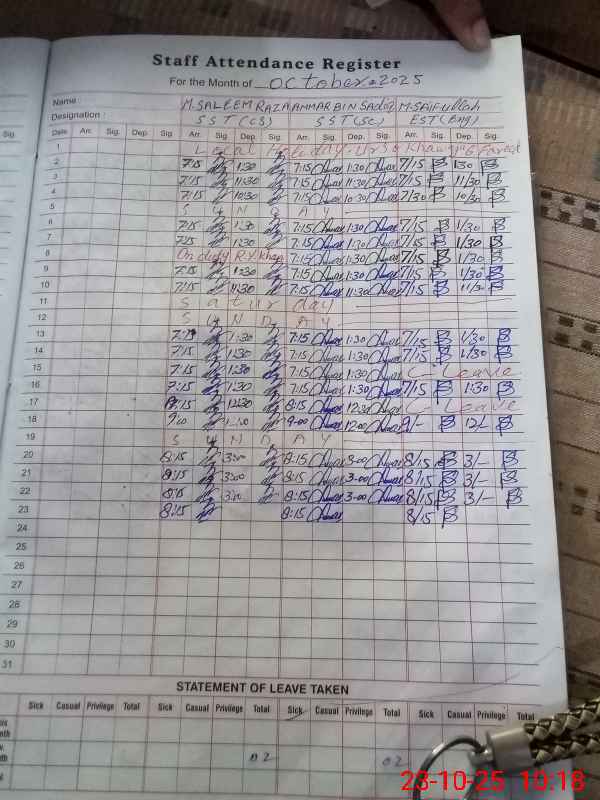 Staff Attendance Register
For the Month of October 2025
Name : M. SALEEM RAZA AMMAR BIN SADIQ M. SAIFULLAH
Designation : SST (CS) SST (SC) EST (Eng)
Sig. Date Arr. Sig. Dep. Sig. Arr. Sig. Dep. Sig. Arr. Sig. Dep. Sig. Arr. Sig. Dep. Sig.
1 Local Holiday. Urs
2 7:15 1:30 7:15 1:30 7/15 1/30
3 7:15 11:30 7:15 11:30 7/15 11/30
4 7:15 10:30 7:15 10:30 7/30 10/30
5 SUNDAY
6 7:15 1:30 7:15 1:30 7/15 1/30
7 7:15 1:30 7:15 1:30 7/15 1/30
8 On duty R.Y.Khan 7:15 1:30 7/15 1/30
9 7:15 1:30 7:15 1:30 7/15 1/30
10 7:15 11:30 7:15 11:30 7/15 11/30
11 Saturday
12 SUNDAY
13 7:15 1:30 7:15 1:30 7/15 1/30
14 7:15 1:30 7:15 1:30 7/15 1/30
15 7:15 1:30 7:15 1:30 C- Leave
16 7:15 1:30 7:15 1:30 7/15 1:30
17 8:15 12:30 8:15 12:30 C- Leave
18 9:00 9-00 12:00 9/- 12/-
19 SUNDAY
20 8:15 3:00 8:15 3-00 8/15 3/-
21 8:15 3:00 8:15 3-00 8/15 3/-
22 8:15 3:00 8:15 3-00 8/15 3/-
23 8:15 8:15 8/15
24
25
26
27
28
29
30
31
STATEMENT OF LEAVE TAKEN
Sick Casual Privilege Total Sick Casual Privilege Total Sick Casual Privilege Total Sick Casual Privilege Total
02 02
23-10-25 10:18